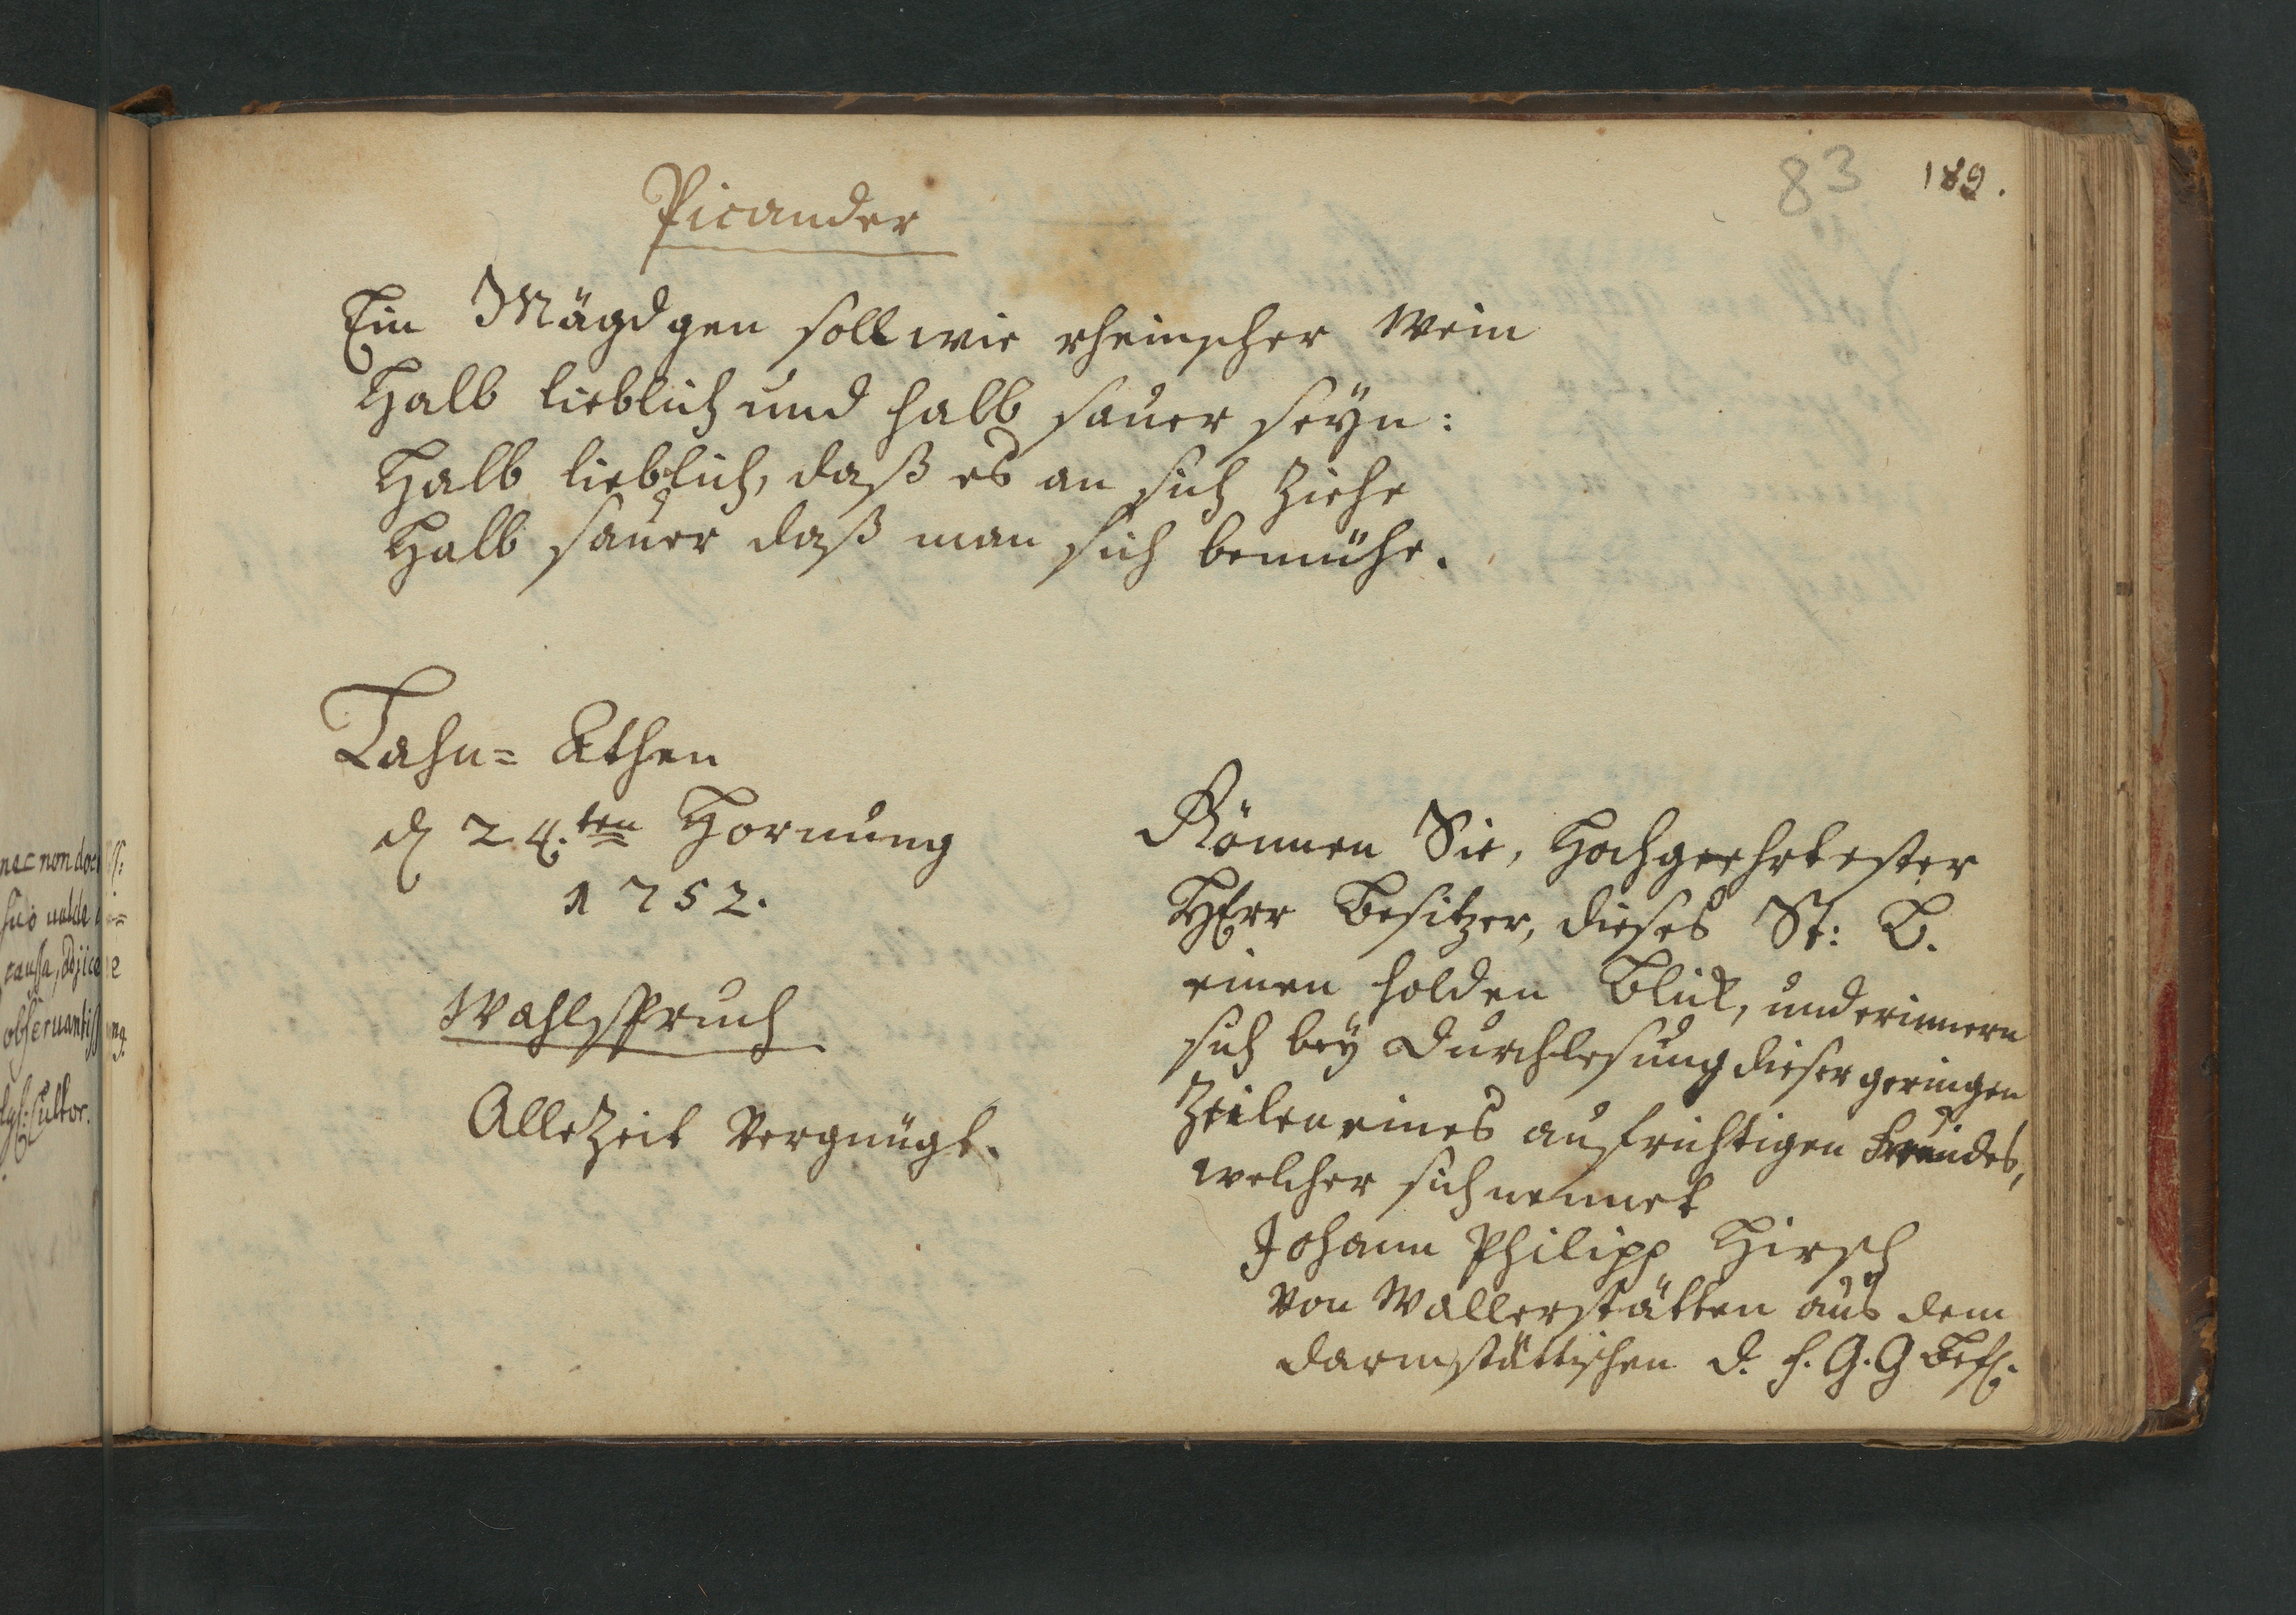 83 189.
Picander
Ein Mägdgen soll wie rheinscher Wein
Halb lieblich und halb sauer seyn:
Halb lieblich, daß es an sich ziehe
Halb sauer daß man sich bemühe.
Lahn= Athen
d 24.ten Hornung
1752.
Wahlspruch
Allezeit Vergnügt.
Gönnen Sie, Hochgeehrtester
HErr Besitzer, dieses St: B.
einen holden Blick, und erinnern
sich bey Durchlesung dieser geringen
Zeilen eines aufrichtigen Freundes,
welcher sich nennet
Johann Philipp Hirsch
von Wallerstätten aus dem
Darmstättischen d. h. G. G Befl.
nec non doct
suo valde
caussa, adjice
observantiss
Cultor.